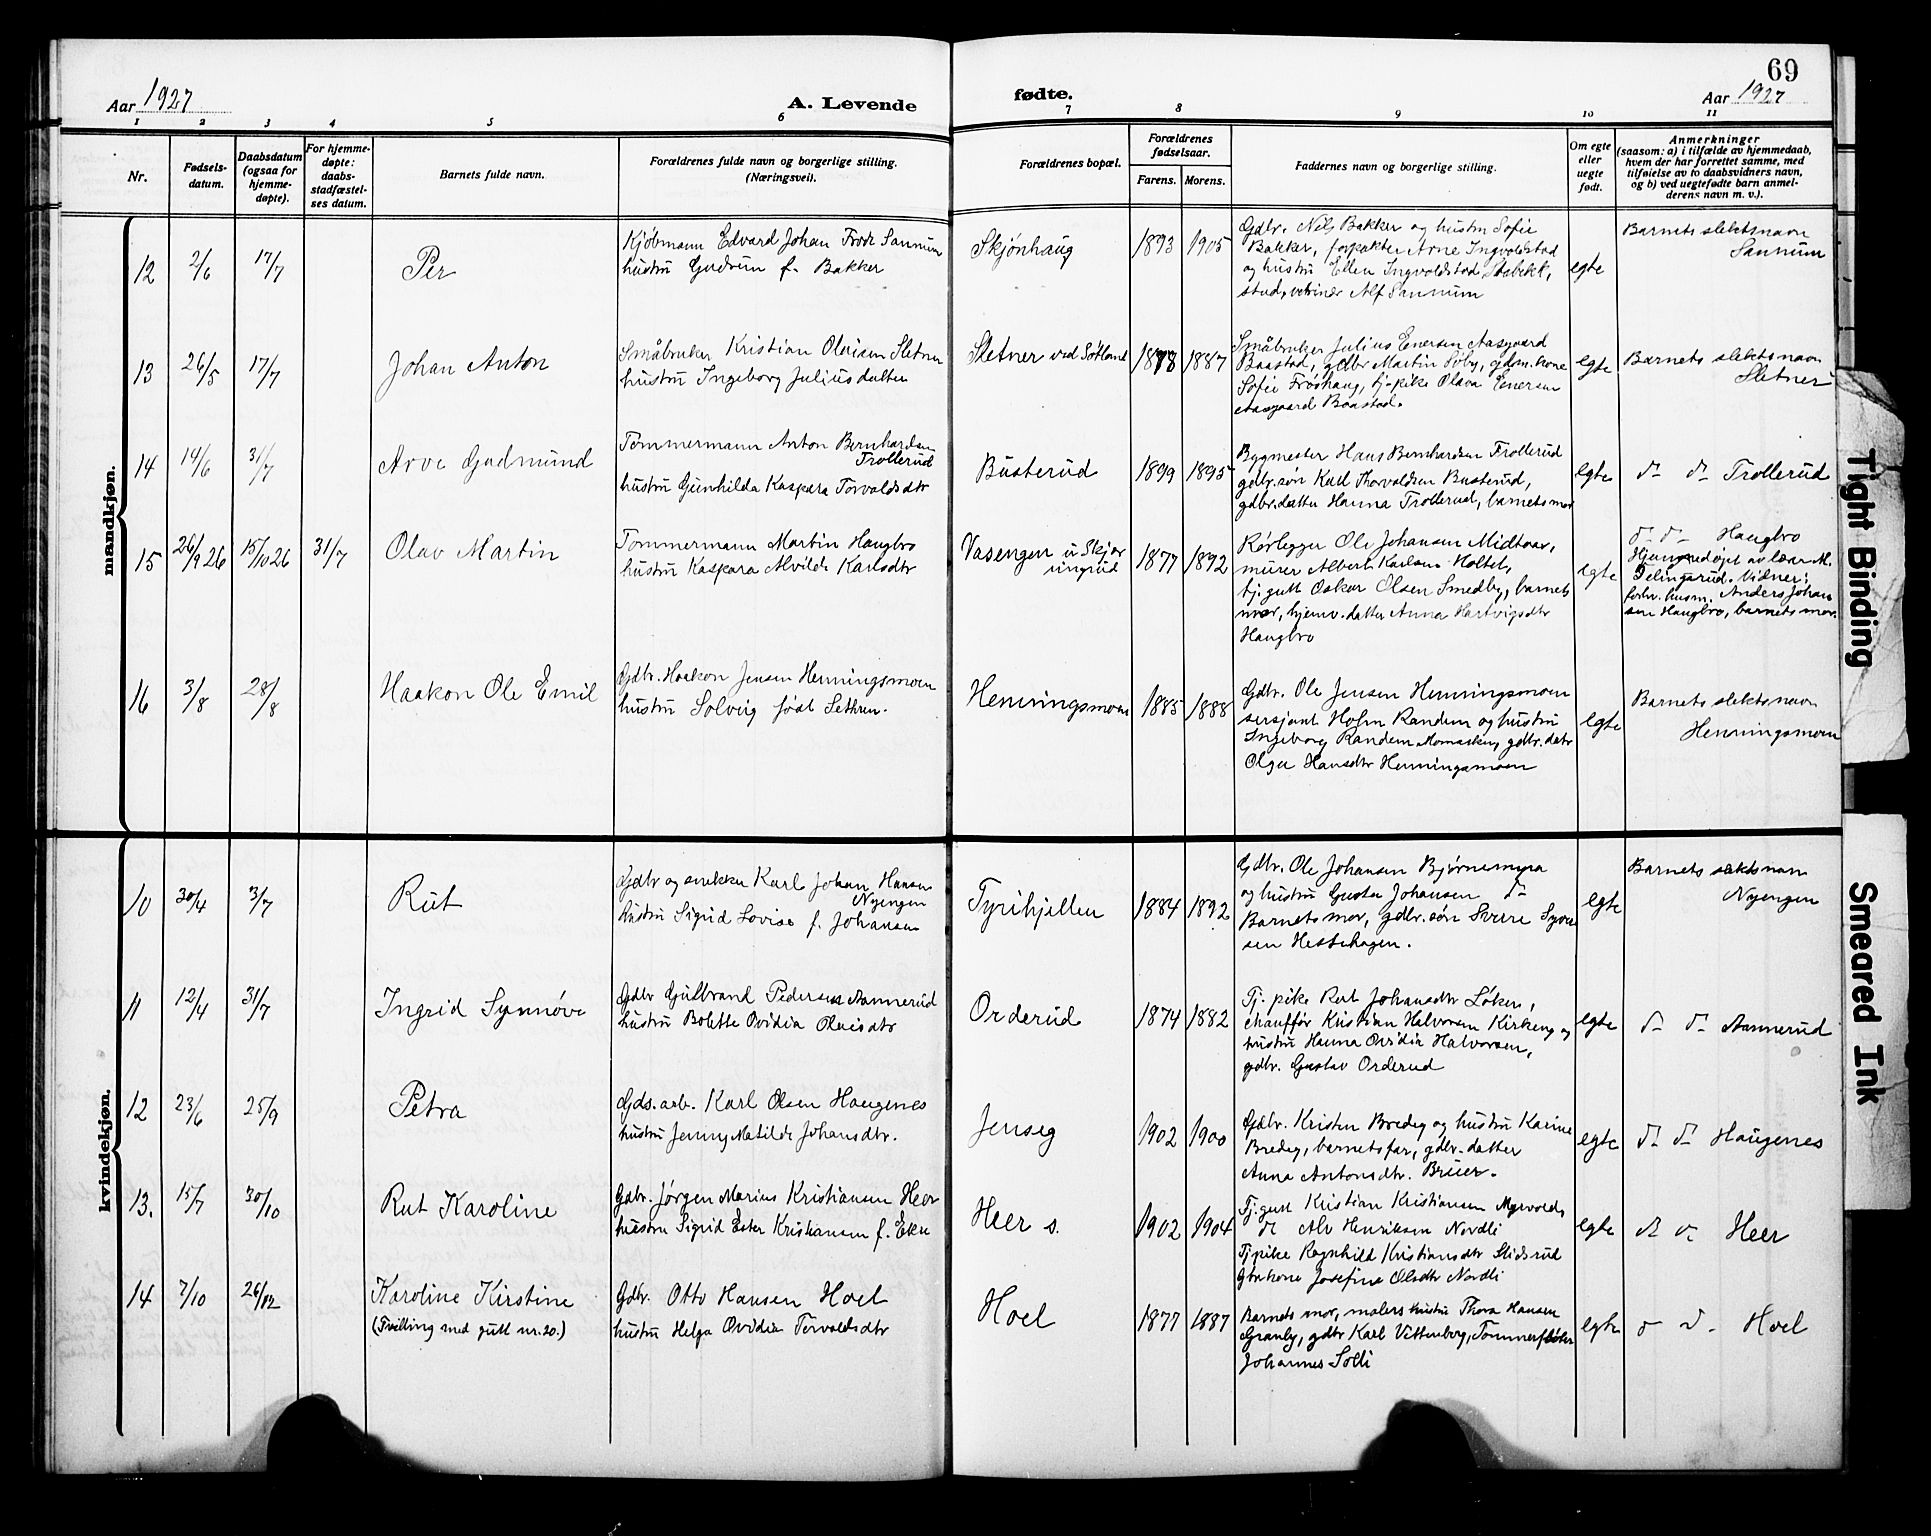 69
Aar 1927
A. Levende
fødte.
Aar 1927
1 2 3 4 5 6 7 8 9 10 11
Nr.
Fødsels-
datum.
Daabsdatum
(ogsaa for
hjemme-
døpte).
For hjemme-
døpte:
daabs-
stadfæstel-
ses datum.
Barnets fulde navn.
Forældrenes fulde navn og borgerlige stilling.
(Næringsvei).
Forældrenes bopæl.
Forældrenes
fødselsaar.
Farens. Morens.
Faddernes navn og borgerlige stilling.
Om egte
eller
uegte
født.
Anmerkninger
(saasom: a) i tilfælde av hjemmedaab,
hvem der har forrettet samme, med
tilføielse av to daabsvidners navn,
og b) ved uegtefødte barn anmel-
derens navn m. v.).
mandkjøn.
12 2/6 17/7
Per
Kjøbmann Edvard Johan Frode Sannum
hustru Gudrun f. Bakker
Skjønhaug
1893 1905
Gdbr. Nils Bakker og hustru Sofie
Bakker, forpakter Arne Ingvoldstad
og hustru Ellen Ingvoldstad Stabekk,
stud. veterinær Alf Sannum
egte
Barnets slektsnavn
Sannum
13 26/5 17/7
Johan Anton
Småbruker Kristian Oleisen Sletner
hustru Ingeborg Juliusdatter
Sletner ved Søtland
1878 1887
Småbruker Julius Enersen Aasgaard
Baastad, gdbr Martin Søby, gdsm. kone
Sofie Frøshaug, tj-pike Olava Enersen
Aasgaard Baastad.
egte
Barnets slektsnavn
Sletner
14 14/6 31/7
Arve Gudmund
Tømmermann Anton Bernhardsen
Trollerud
hustru Gunhilda Kaspara Torvaldsdtr
Busterud
1899 1895
Bygmester Hans Bernhardsen Trollerud
gdbr. søn Karl Thorvaldsen Busterud,
gdbr. datter Hanna Trollerud, barnets mor
egte
d- d- Trollerud
15 26/9 26 15/10 26 31/7
Olav Martin
Tømmermann Martin Haugbro
hustru Kaspara Alvilde Karlsdtr
Vasengen u Skjør
ungrud
1877 1892
Rørlegger Ole Johansen Midtvar,
murer Albert Karlsen Holtet,
tj. gutt Oskar Olsen Smedby, barnets
mor, hjemv. datter Anna Hartvigsdtr
Haugbro
egte
d- d- Haugbro
Hjemmedøpt av lærer M.
Delingsrud. Vidner:
forhv. husm. Anders Johan
sen Haugbro, barnets mor.
16 3/8 28/8
Haakon Ole Emil
Gdbr. Haakon Jensen Henningsmoen
hustru Solveig født Sethren.
Henningsmoen
1885 1888
Gdbr. Ole Jensen Henningsmoen
sersjant Holm Randem og hustru
Ingeborg Randem Momarken, gdbr. datr
Olga Hansdtr Henningsmoen
egte
Barnets slektsnavn
Henningsmoen
kvindekjøn.
10 30/4 3/7
Rut
Gdbr og snekker Karl Johan Hansen
Nyengen
hustru Sigrid Lovise f. Johansen
Tyrihjellen
1884 1892
Gdbr. Ole Johansen Bjørnemyra
og hustru Gusta Johansen d-
Barnets mor, gdbr. søn Sverre Syver
sen Hestehagen.
egte
Barnets slektsnavn
Nyengen
11 12/4 31/7
Ingrid Synnøve
Gdbr Gulbrand Pedersen Aannerud
hustru Bolette Ovidia Oleisdtr
Orderud
1874 1882
Tj. pike Rut Johansdtr Løken,
chauffør Kristian Halvorsen Kirkeng og
hustru Hanna Ovidia Halvorsen,
gdbr. Gustav Orderud
egte
d- d- Aannerud
12 23/6 25/9
Petra
Gds. arb. Karl Olsen Haugenes
hustru Jenny Matilde Johansdtr.
Jenseg
1902 1900
Gdbr. Kristen Bredeg og hustru Karine
Bredeg, barnets far, gdbr. datter
Anna Antonsdtr. Breier.
egte
d- d- Haugenes
13. 15/7 30/10
Rut Karoline
Gdbr. Jørgen Marius Kristiansen Heer
hustru Sigrid Ester Kristiansen f. Eken
Heer s.
1902 1904
Tj. gutt Kristian Kristiansen Myrvold,
d- Alv Henriksen Nordli
Tjpike Ragnhild Kristiansdtr Slidsrud
Gbrkone Josefine Olsdtr Nordli
egte
d- d- Heer
14 7/10 26/12
Karoline Kirstine
(Tvilling med gutt nr. 20.)
Gdbr. Otto Hansen Hoel
hustru Helga Ovidia Torvaldsdtr
Hoel
1877 1887
Barnets mor, malers hustru Thora Hansen
Granby, gdbr Karl Vittenberg, Tømmerfløter
Johannes Solli
egte
d d- Hoel
Tight Binding
Smeared Ink